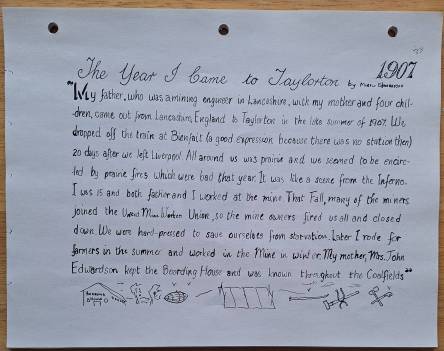 1907
The Year I Came to Taylorton by Edwardson
"My father, who was a mining engineer in Lancashire, with my mother and four chil-
dren, came out from Lancashire, England to Taylorton in the late summer of 1907. We
dropped off the train at Bienfait (a good expression because there was no station then)
20 days after we left Liverpool. All around us was prairie and we seemed to be encirc-
led by prairie fires which were bad that year. It was like a scene from the Inferno.
I was 15 and both father and I worked at the mine. That Fall, many of the miners
joined the United Mine Workers Union, so the mine owners fired us all and closed
down. We were hard-pressed to save ourselves from starvation. Later I rode for
farmers in the summer and worked in the Mine in winter. My mother, Mrs. John
Edwardson kept the Boarding House and was known throughout the Coalfields"